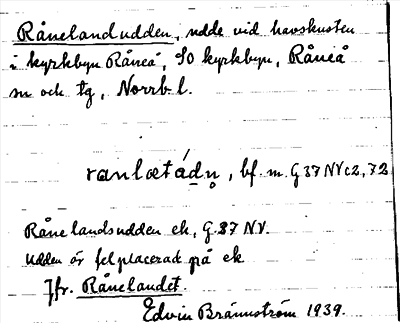 Råneland udden, udde vid havskusten
i kyrkbyn Råneå, SO kyrkbyn, Råneå
sn och tg, Norrb l.
ranlætádn̥, bf. m. G 37 NV c2, 72
Råne landsudden ek, G.37 NV.
Udden är felplacerad på ek
Jfr. Rånelandet.
Edvin Brännström 1939.